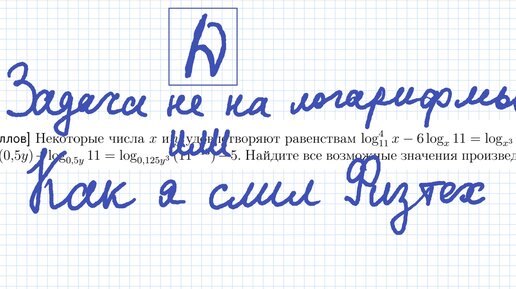 Ъ
Задача не на логарифмы
ллов] Некоторые числа x и удовлетворяют равенствам log₁₁⁴ x − 6 logₓ 11 = log_{x³}
или
(0,5y) log_{0,5y} 11 = log_{0,125y³} (11 − 5. Найдите все возможные значения произвед
Как я слил Физтех